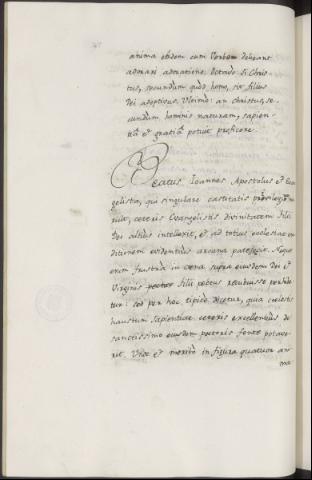 anima ebdem cum Verbom debeant
adorari adoratione. Octavò Si Chris-
tus, secundùm quòd homo, sit filius
Dei adoptivus. Ultimò: an christus, se-
cundùm hominis naturam, sapien-
tiâ et gratiâ potuit proficere.
Beatus Ioannes Apostolus et Evan
gelista, qui singulare castitatis privilegium me
ruit, ceteris Evangelistis divinitatem filii
Dei altius intellexit, et ad totius ecclesiae eru
ditionem evidentius arcana patefecit. Neque
enim frustrà in cœna supra eiusdem Dei et
Virginis pectus filii pectus recubuisse perhibe
tur: sed per hoc tipicè docetur, quia cœlestis
haustum Sapientiae ceteris excellentius de
sanctissimo eiusdem pectoris fonte potave-
rit. Unde et meritò in figura quatuor ani
ma